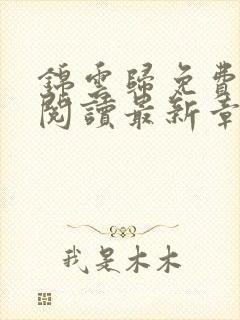 錦雲歸免費
閱讀最新章
我是木木